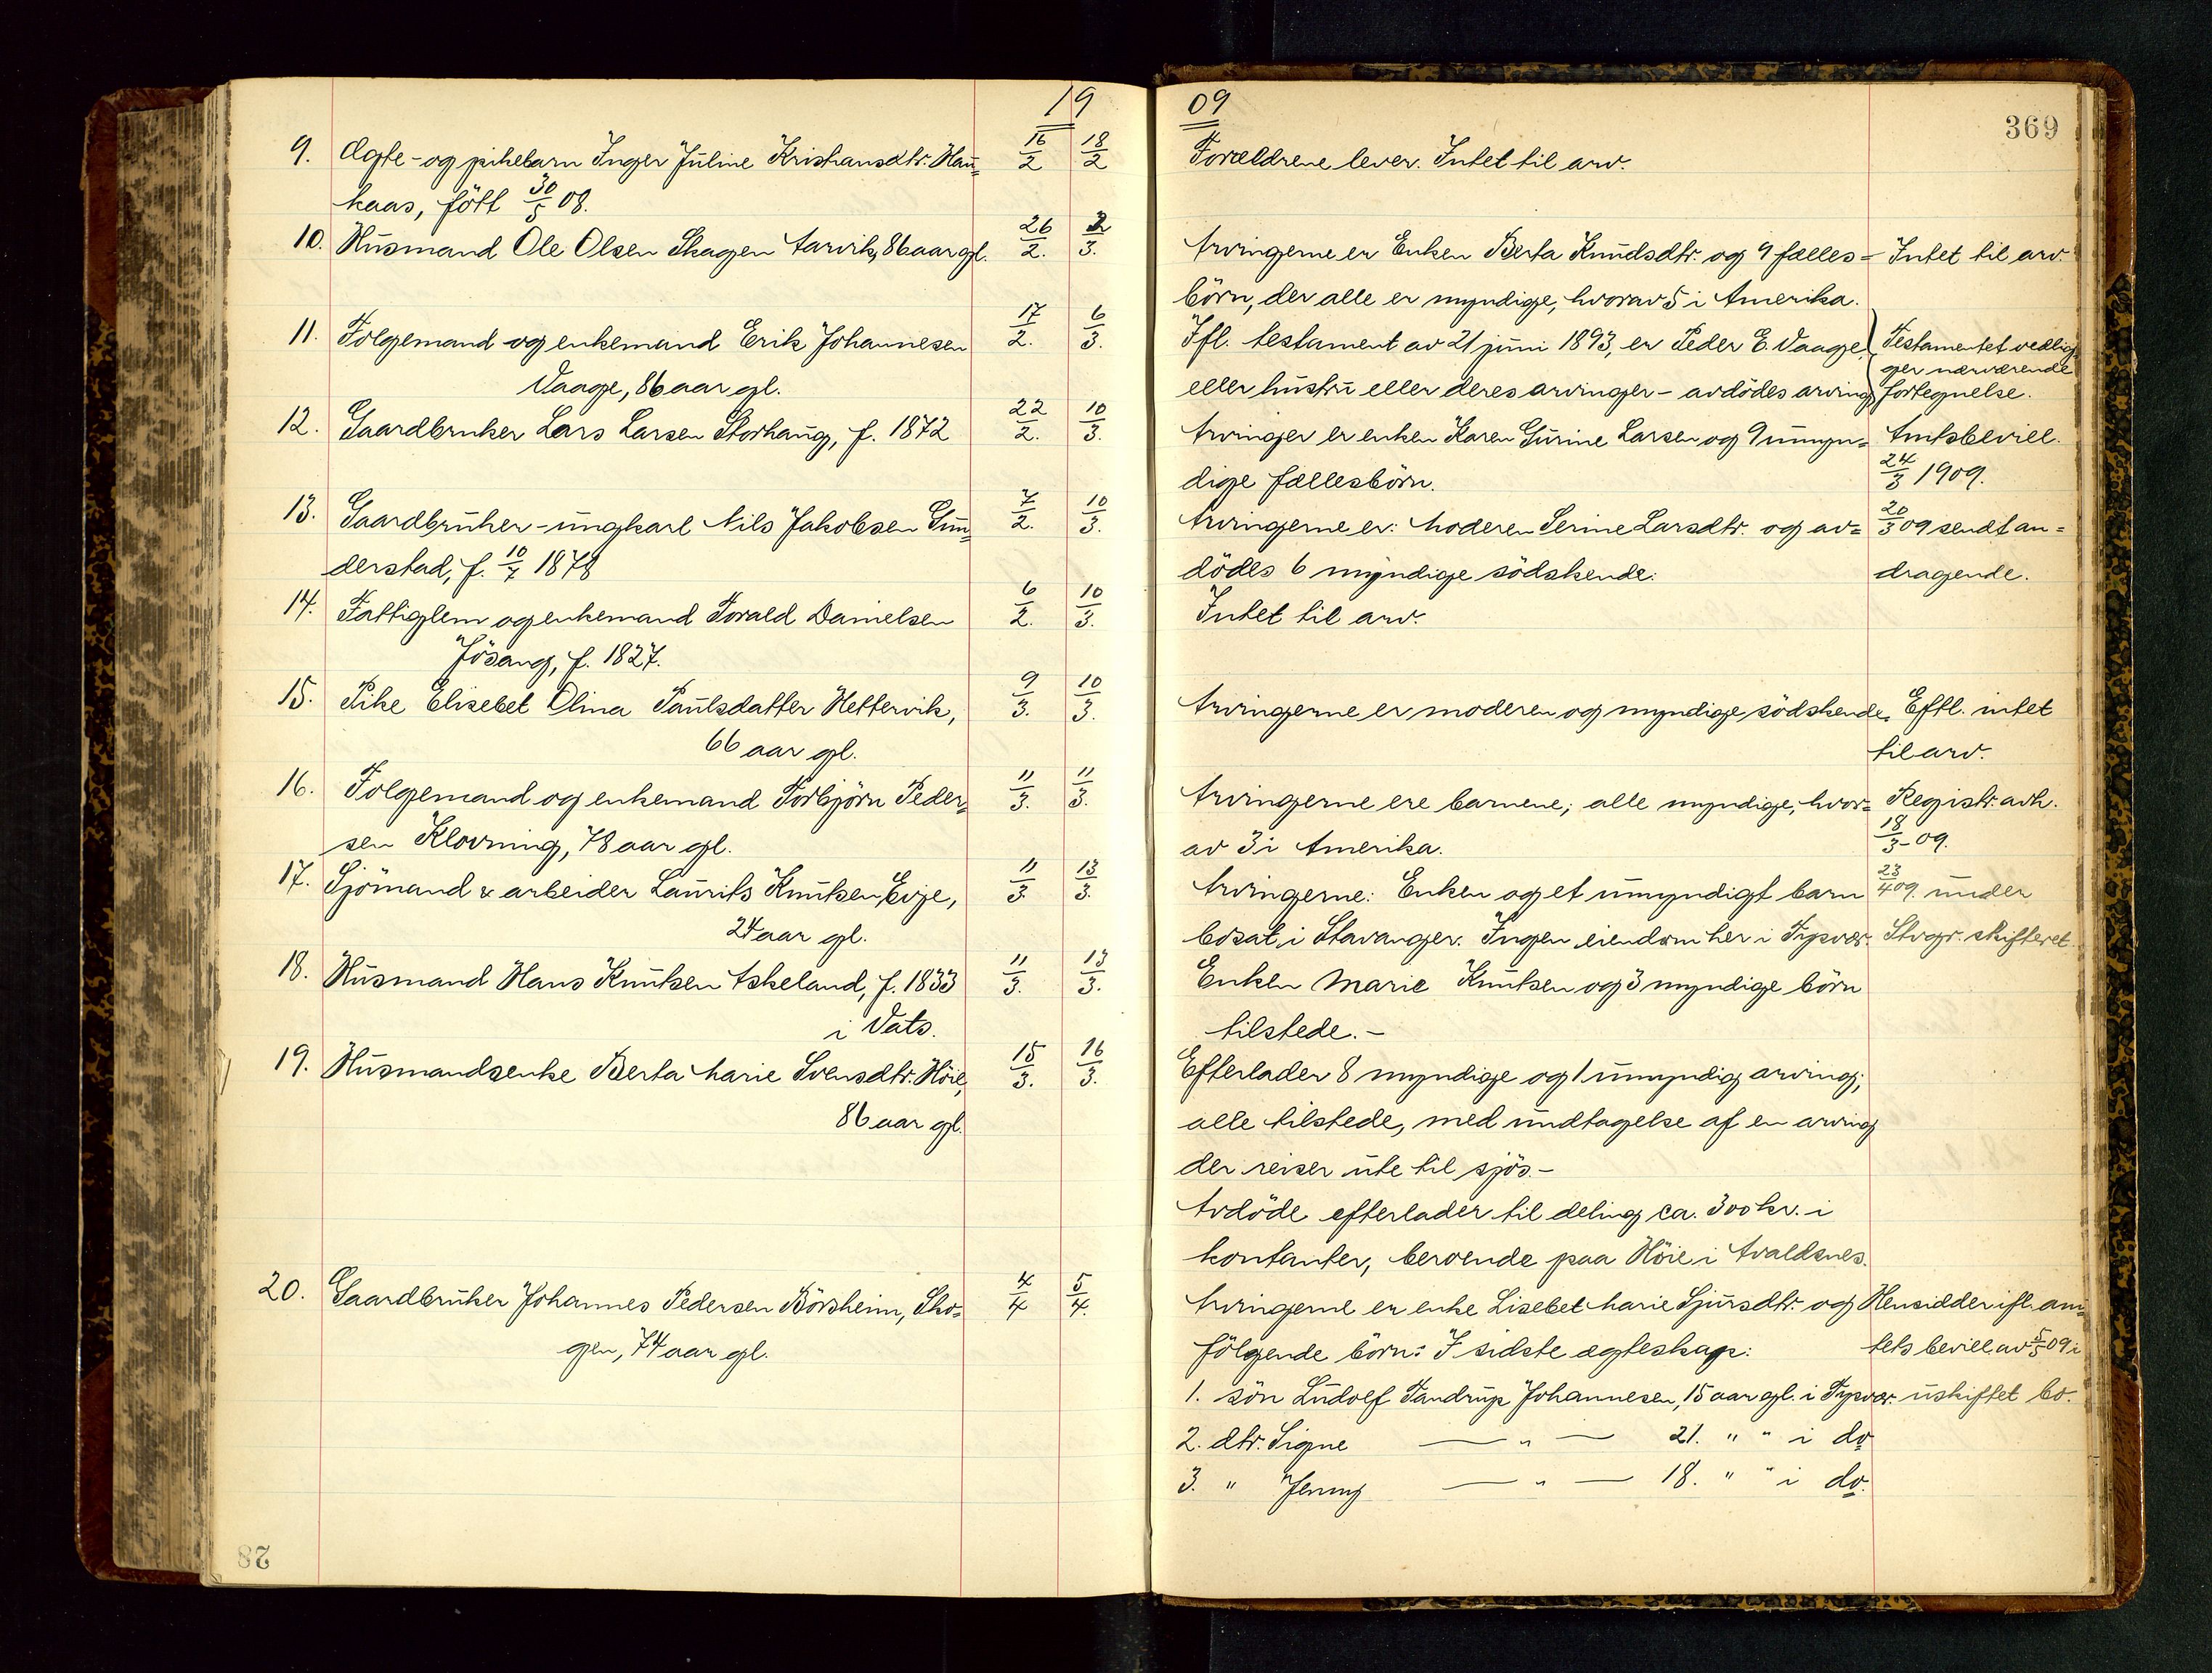 19 09
369
9. Ægte- og pikebarn Inger Juline Kristiansdtr. Hau= 16/2 18/2 Forældrene lever. Intet til arv.
kaas, født 30/5 08.
10. Husmand Ole Olsen Skagen Aarvik, 86 aar gl. 26/2. 2/3. Arvingerne er Enken Berta Knudsdtr. og 9 fælles= Intet til arv.
børn, der alle er myndige, hvorav 5 i Amerika.
11. Folgemand og enkemand Erik Johannesen 17/2. 6/3. Ifl. testament av 21 juni 1893, er Peder E. Vaage, Testamentet vedlig=
ger nærværende
Vaage, 86 aar gl. eller hustru eller deres arvinger - avdødes arving fortegnelse.
12. Gaardbruker Lars Larsen Storhaug, f. 1872 22/2. 10/3. Arvinger er enken Karen Gurine Larsen og 9 umyn= Amtsbevill.
dige fællesbørn. 24/3 1909.
13. Gaardbruker - ungkarl Nils Jakobsen Gun= 7/2. 10/3. Arvingerne er: Moderen Serine Larsdtr. og av= 20/3 09 sendt an=
derstad, f. 10/7 1878 dødes 6 myndige södskende. dragende.
14. Fattiglem og enkemand Torald Danielsen 6/2. 10/3. Intet til arv.
Jösang, f. 1827.
15. Pike Elisebet Olina Paulsdatter Hettervik, 9/3. 10/3. Arvingerne er moderen og myndige södskende. Eftl. intet
66 aar gl. til arv.
16. Folgemand og enkemand Torbjörn Peder= 11/3. 11/3. Arvingerne ere barnene; alle myndige, hvor= Registr. avh.
sen Klovning, 78 aar gl. av 3 i Amerika. 18/3 - 09.
17. Sjömand & arbeider Laurits Knutsen Evje, 11/3. 13/3. Arvingerne: Enken og et umyndigt barn 23/4 09. under
24 aar gl. bosat i Stavanger. Ingen eiendom her i Tysvær. Stvgr. skifteret.
18. Husmand Hans Knutsen Askeland, f. 1833 11/3. 13/3. Enken Marie Knutsen og 3 myndige börn
i Vats. tilstede.-
19. Husmandsenke Berta Marie Svensdtr. Höie, 15/3. 16/3. Efterlader 8 myndige og 1 umyndig arving;
86 aar gl. alle tilstede, med undtagelse af en arving
der reiser ute til sjös.-
Avdöde efterlader til deling ca. 300 kr. i
kontanter, beroende paa Höie i Avaldsnes.
20. Gaardbruker Johannes Pedersen Börsheim, Sko= 4/4 5/4. Arvingerne er enke Lisebet Marie Sjursdtr. og Hensidder ifl. am=
gen, 74 aar gl. fölgende börn: I sidste ægteskap: tets bevill. av 5/5 09 i
1. sön Ludolf Tandrup Johannesen, 15 aar gl. i Tysvær. uskiftet bo.
2. dtr. Signe — " — 21. " " i do
3. " Jenny — " — 18. " " i do.
28